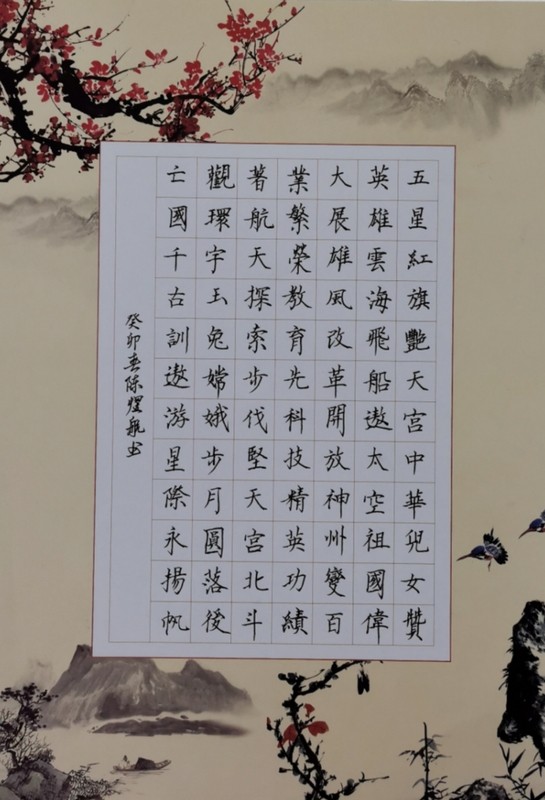 五星紅旗艷天宮中華兒女贊
英雄雲海飛船遨太空祖國偉
大展雄風改革開放神州變百
業繁榮教育先科技精英功績
著航天探索步伐堅天宮北斗
觀環宇玉兔嫦娥步月圓落後
亡國千古訓遨游星際永揚帆
癸卯春陈煜航书